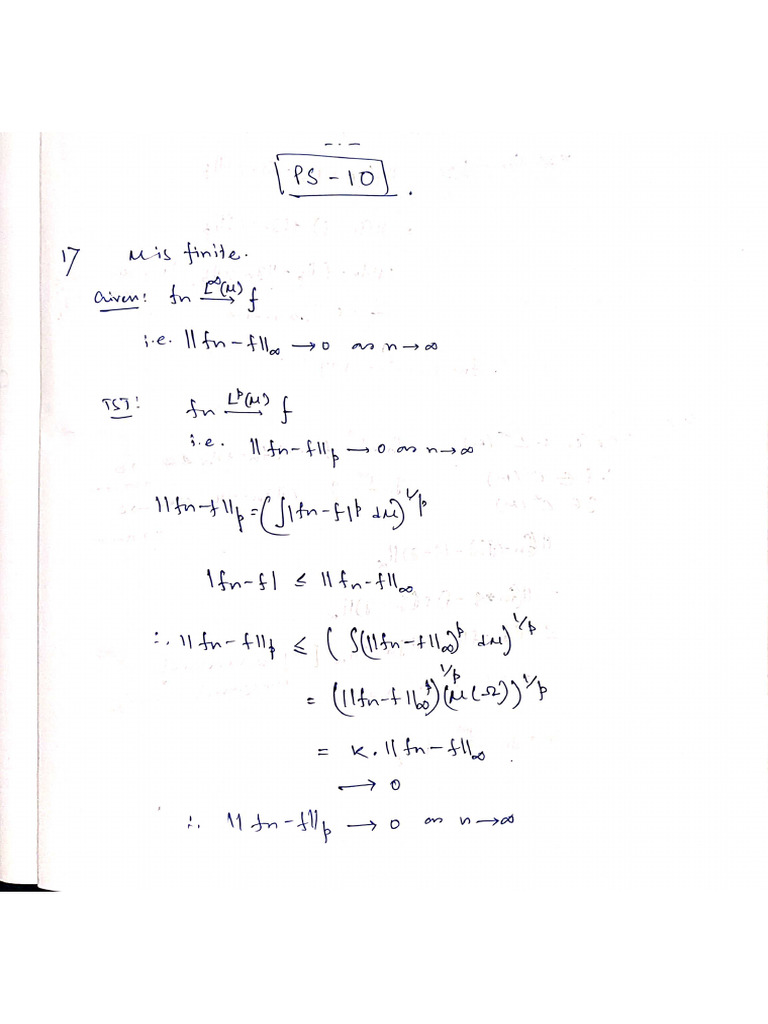 PS - 10
17 μ is finite.
Given: fn —L^∞(μ)→ f
i.e. ||fn - f||∞ → 0 as n → ∞
TST: fn —L^p(μ)→ f
i.e. ||fn - f||p → 0 as n → ∞
||fn - f||p = (∫|fn - f|^p dμ)^1/p
|fn - f| ≤ ||fn - f||∞
∴ ||fn - f||p ≤ (∫(||fn - f||∞)^p dμ)^1/p
= (||fn - f||∞^p)^1/p (μ(Ω))^1/p
= K. ||fn - f||∞
→ 0
∴ ||fn - f||p → 0 as n → ∞